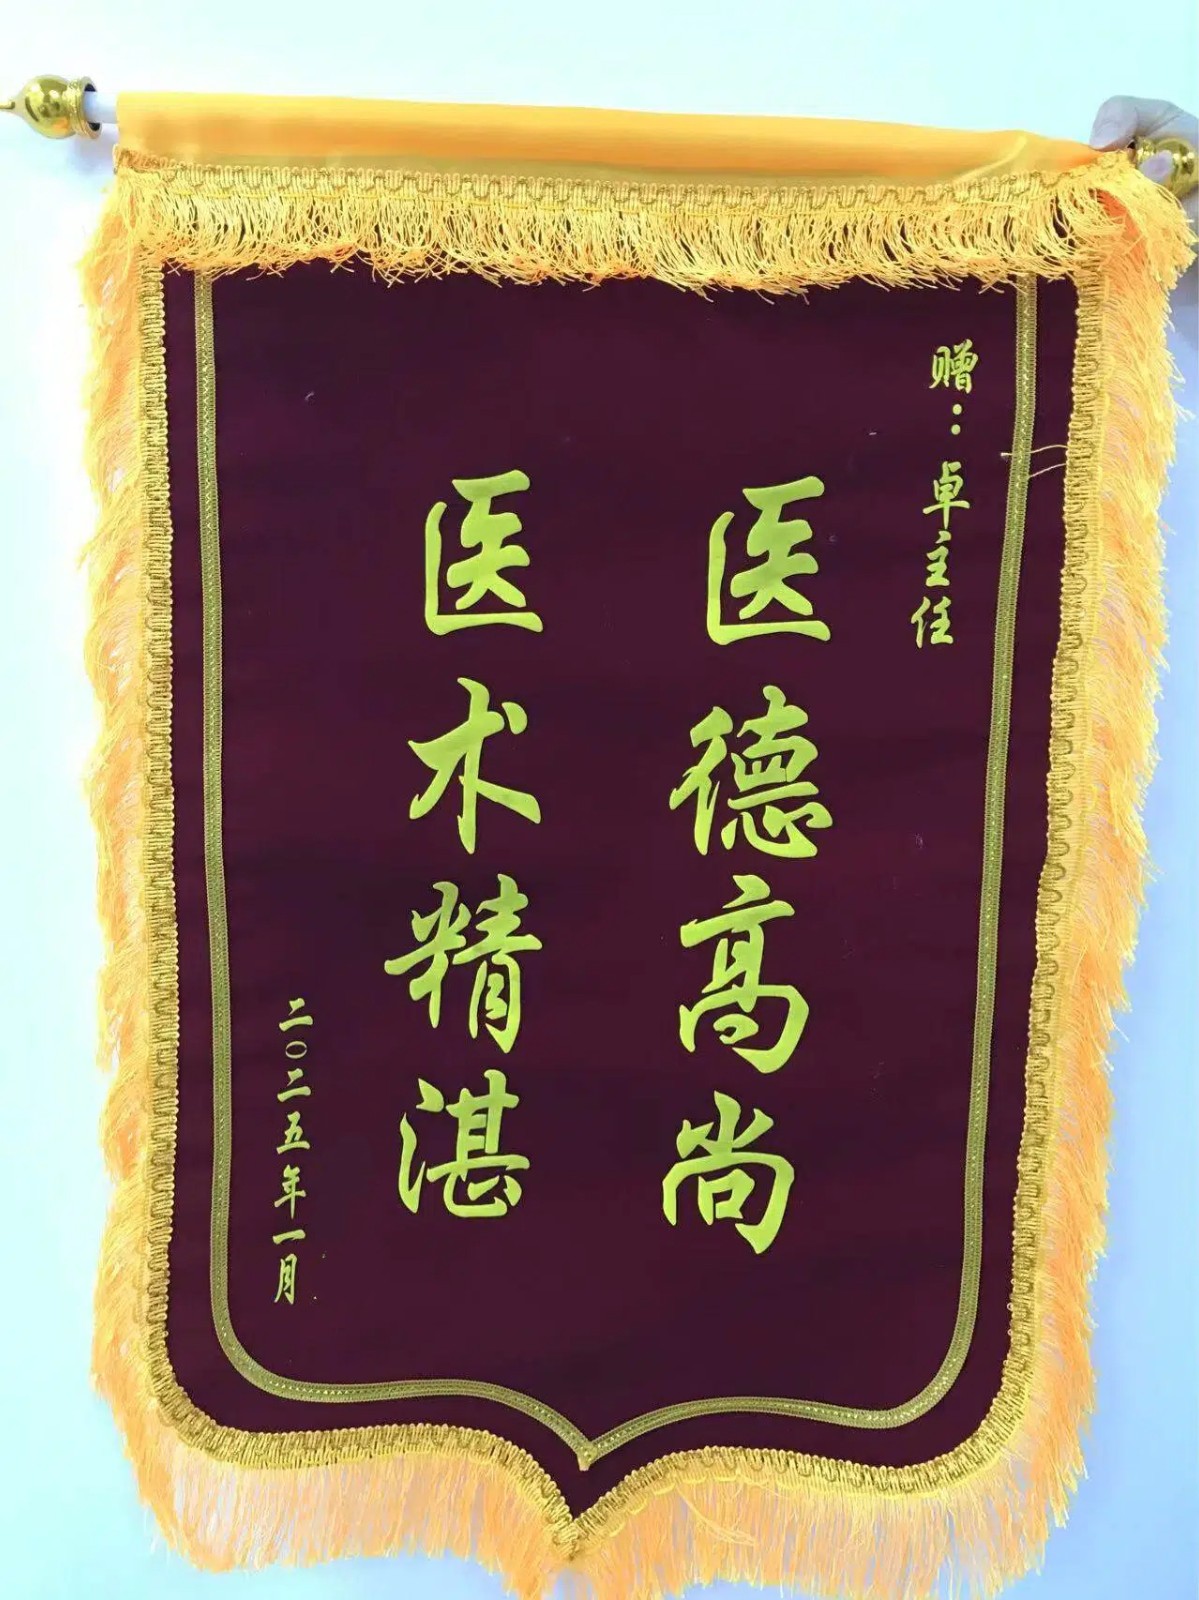 赠：卓主任
医德高尚
医术精湛
二〇二五年一月